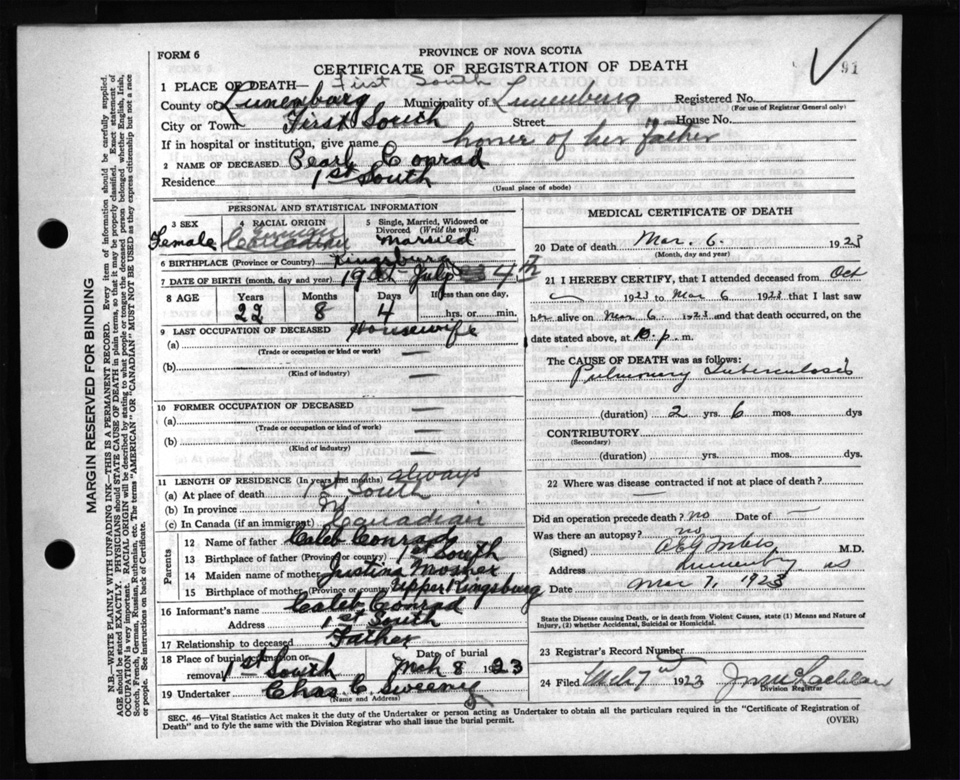 FORM 6
PROVINCE OF NOVA SCOTIA
CERTIFICATE OF REGISTRATION OF DEATH
91
1 PLACE OF DEATH— First South
County of Lunenburg Municipality of Lunenburg Registered No.
(For use of Registrar General only)
City or Town First South Street House No.
If in hospital or institution, give name home of her father
2 NAME OF DECEASED Pearl Conrad
Residence 1st South
(Usual place of abode)
PERSONAL AND STATISTICAL INFORMATION
3 SEX Female
4 RACIAL ORIGIN German Canadian
5 Single, Married, Widowed or Divorced (Write the word) Married
6 BIRTHPLACE (Province or Country) Kingsburg
7 DATE OF BIRTH (month, day and year) July 4th
8 AGE Years Months Days If less than one day,
22 8 4 hrs. or min.
9 LAST OCCUPATION OF DECEASED Housewife
(a)
(Trade or occupation or kind or work)
(b)
(Kind of industry)
10 FORMER OCCUPATION OF DECEASED
(a)
(Trade or occupation or kind or work)
(b)
(Kind of industry)
11 LENGTH OF RESIDENCE (In years and months) always
(a) At place of death 1st South
(b) In province
(c) In Canada (if an immigrant) Canadian
Parents
12 Name of father Caleb Conrad
13 Birthplace of father (Province or country) 1st South
14 Maiden name of mother Justina Mosher
15 Birthplace of mother (Province or country) Upper Kingsburg
16 Informant's name Caleb Conrad
Address 1st South
17 Relationship to deceased Father
18 Place of burial, cremation or removal 1st South Date of burial Mch 8 1923
19 Undertaker Chas. C. Sweeny
(Name and Address)
MEDICAL CERTIFICATE OF DEATH
20 Date of death Mar. 6. 1923
(Month, day and year)
21 I HEREBY CERTIFY, that I attended deceased from Oct
1923 to Mar 6 1923 that I last saw
her alive on Mar 6 1923 and that death occurred, on
date stated above, at p. m.
The CAUSE OF DEATH was as follows:
Pulmonary Tuberculosis
(duration) 2 yrs. 6 mos. dys
CONTRIBUTORY
(Secondary)
(duration) yrs. mos. dys
22 Where was disease contracted if not at place of death?
—
Did an operation precede death? no Date of —
Was there an autopsy? no
(Signed) M.D.
Address Lunenburg NS
Date Mar 7, 1923
State the Disease causing Death, or in death from Violent Causes, state (1) Means and Nature of Injury, (2) whether Accidental, Suicidal or Homicidal.
23 Registrar's Record Number
24 Filed Mch 7th 1923 McLachlan
Division Registrar
SEC. 46—Vital Statistics Act makes it the duty of the Undertaker or person acting as Undertaker to obtain all the particulars required in the "Certificate of Registration of
Death" and to fyle the same with the Division Registrar who shall issue the burial permit.
(OVER)
MARGIN RESERVED FOR BINDING
N.B.—WRITE PLAINLY WITH UNFADING INK—THIS IS A PERMANENT RECORD. Every item of information should be carefully supplied.
AGE should be stated EXACTLY. PHYSICIANS should STATE CAUSE OF DEATH in plain terms, so that it may be properly classified. Exact statement of
OCCUPATION is very important. RACIAL ORIGIN will be described by stating to what people or tongue the deceased person belonged whether English, Irish,
Scotch, French, German, Russian, Ruthenian, etc. The terms "AMERICAN" OR "CANADIAN" MUST NOT BE USED as they express citizenship but not a race
or people. See instructions on back of Certificate.